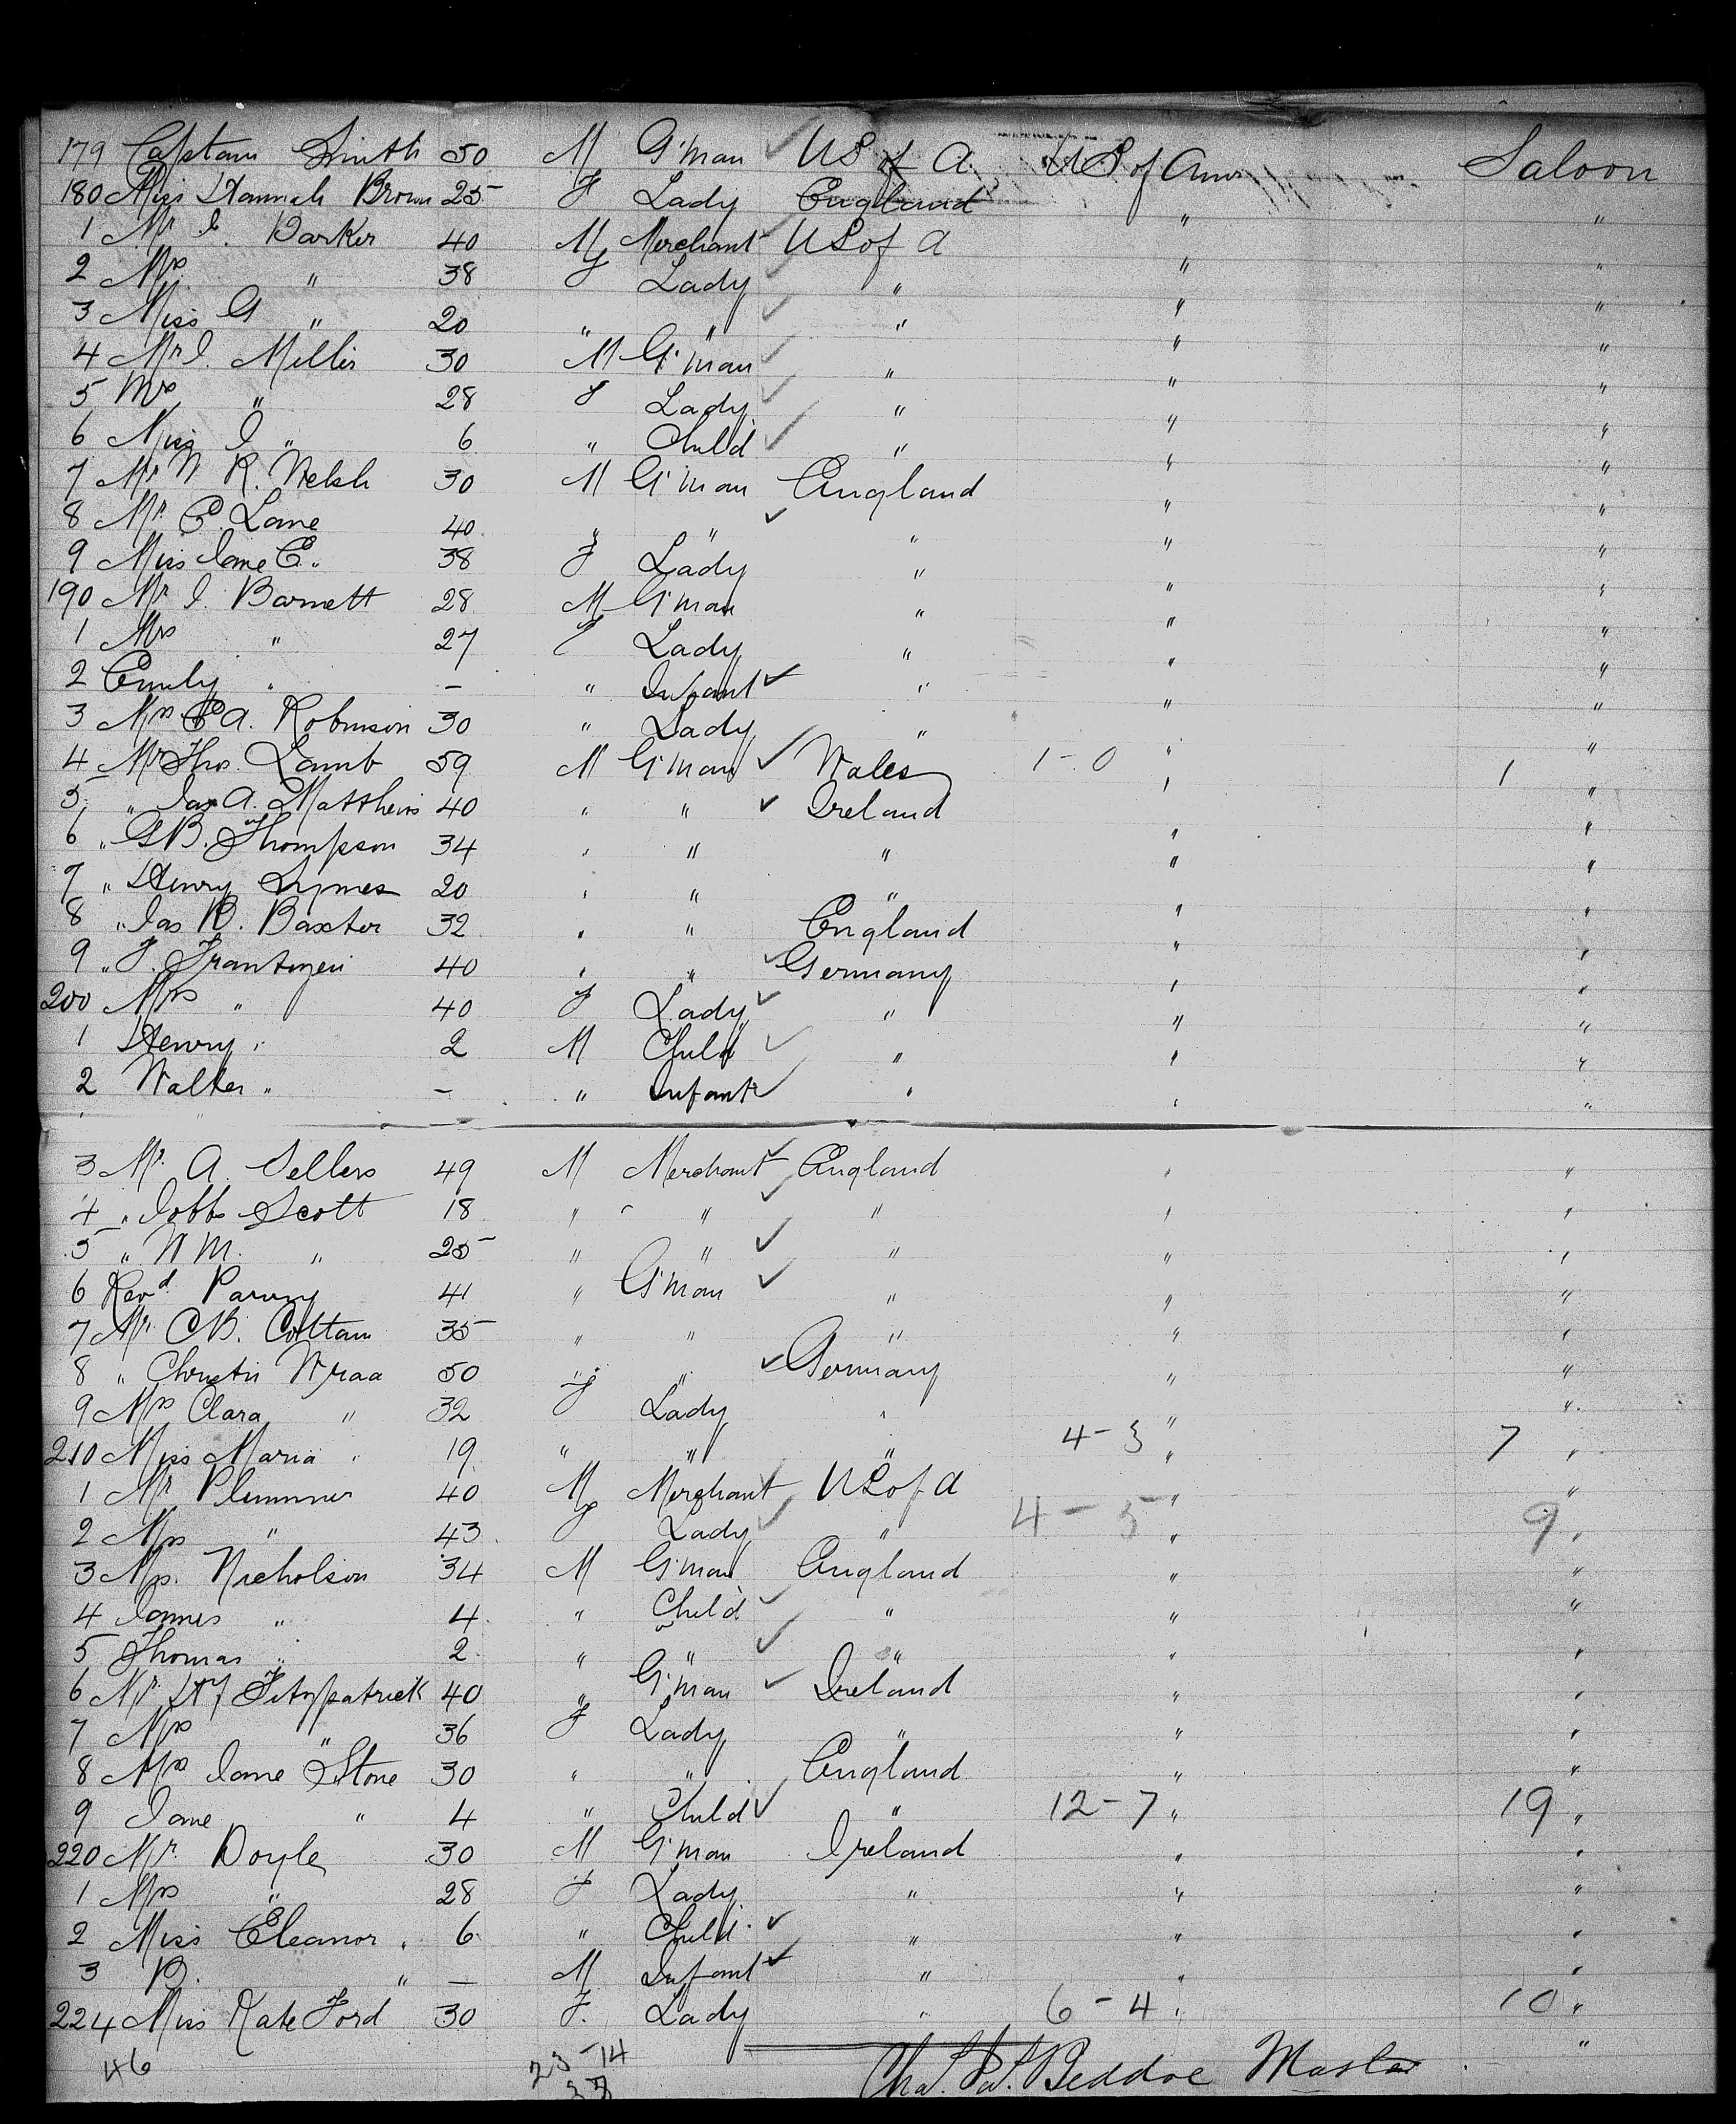 179 Captain Smith 50 M G'man US of A US of Amer Saloon
180 Miss Hannah Brown 25 F Lady England " "
1 Mr J. Barker 40 M Merchant US of A " "
2 Mrs " 38 F Lady " " "
3 Miss G " 20 " " " " "
4 Mr J. Millis 30 M G'man " " "
5 Mrs " 28 F Lady " " "
6 Miss J " 6 " Child " " "
7 Mr W R. Welsh 30 M G'man England " "
8 Mr C. Lane 40 " " " " "
9 Miss Jane C. 38 F Lady " " "
190 Mr J. Barnett 28 M G'man " " "
1 Mrs " 27 F Lady " " "
2 Emily " - " Infant " " "
3 Mrs E A. Robinson 30 " Lady " " "
4 Mr Thos. Lamb 59 M G'man Wales 1-0 " 1 "
5 " Jas A. Matthews 40 " " Ireland " "
6 " G B. Thompson 34 " " " " "
7 " Henry Symes 20 " " " " "
8 " Jas B. Baxter 32 " " England " "
9 " F. 40 " " Germany " "
200 Mrs " 40 F Lady " " "
1 Henry " 2 M Child " " "
2 Walter " - " Infant " " "
3 Mr. A. Sellers 49 M Merchant England " "
4 " Scott 18 " " " " "
5 " W M. " 25 " " " " "
6 Revd 41 " G'man " " "
7 Mr. C B. Coltam 35 " " " " "
8 " Wraa 50 " " Germany " "
9 Mrs Clara " 32 F Lady " " "
210 Miss Maria " 19 " " " 4-3 " 7 "
1 Mr Plummer 40 M Merchant US of A " "
2 Mrs " 43 F Lady " 4-5 " 9 "
3 Mr. Nicholson 34 M G'man England " "
4 James " 4 " Child " " "
5 Thomas " 2 " " " " "
6 Mr. Hy Fitzpatrick 40 " G'man Ireland " "
7 Mrs " 36 F Lady " " "
8 Mrs Jane Stone 30 " " England " "
9 Jane " 4 " Child " 12-7 " 19 "
220 Mr. Doyle 30 M G'man Ireland " "
1 Mrs " 28 F Lady " " "
2 Miss Eleanor " 6 " Child " " "
3 B. " - M Infant " " "
224 Miss Kate Ford 30 F. Lady " 6-4 " 10 "
46 23-14 "
Beddoe Master